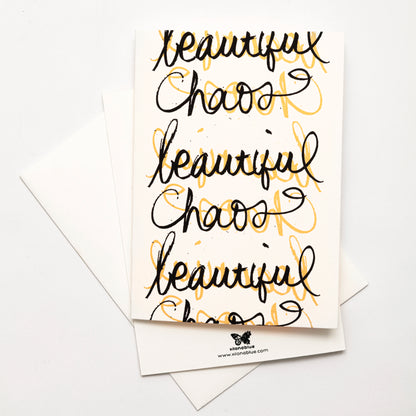 beautiful
chaos
beautiful
chaos
beautiful
chaos
xionoblue
www.xionoblue.com